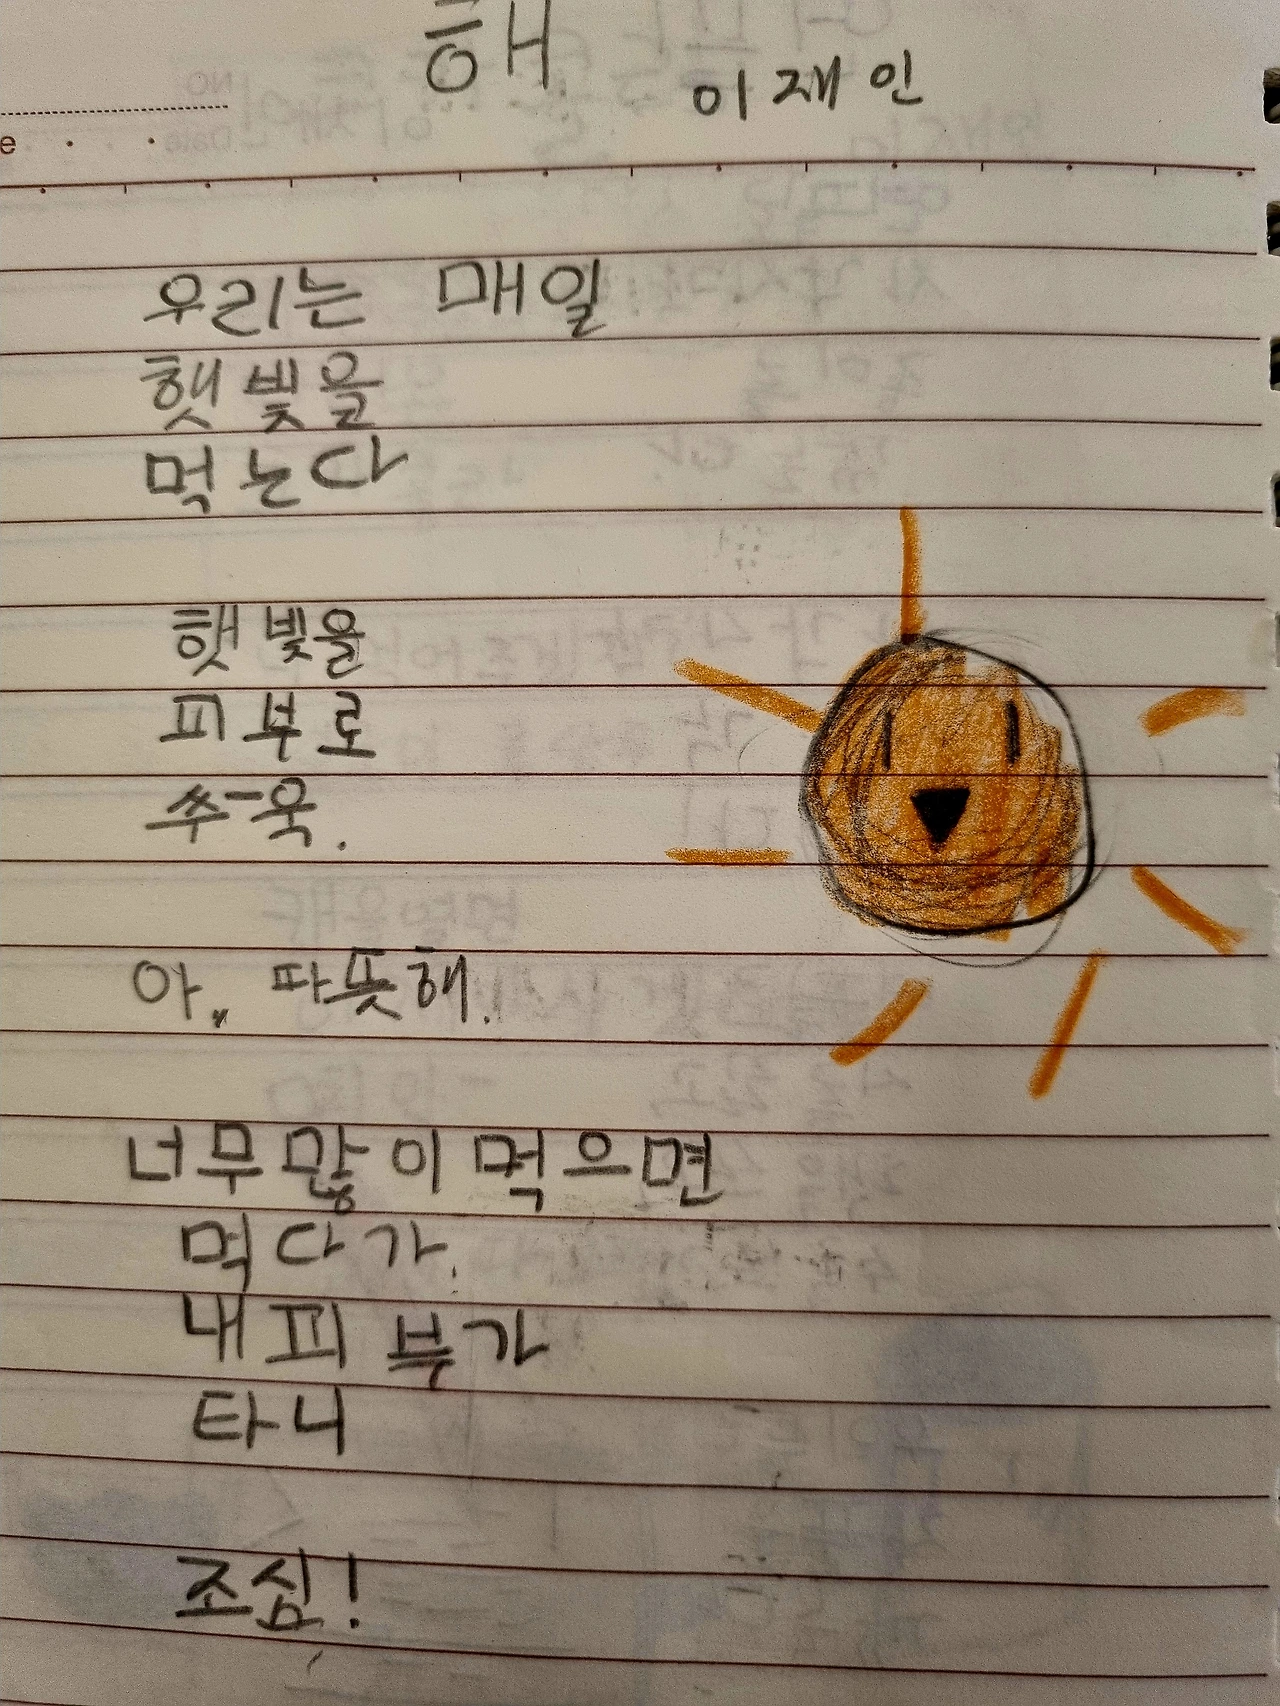 해
이재인
우리는 매일
햇빛을
먹는다
햇빛을
피부로
쑤-욱.
아, 따뜻해.
너무 많이 먹으면
먹다가.
내 피부가
타니
조심!